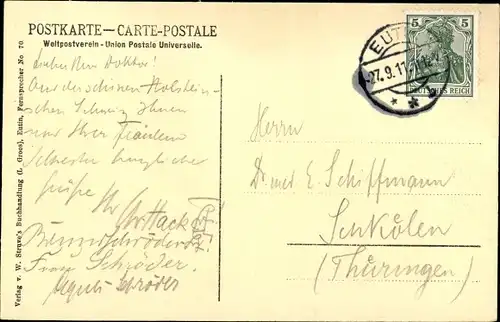 POSTKARTE—CARTE-POSTALE
Weltpostverein - Union Postale Universelle.
EUT
-27.9.11
5 5
DEUTSCHES REICH
Lieber Herr Doktor!
Aus der schönen Holstein-
schen Schweiz Ihnen
und Ihrer Fräulein
Schwester
Grüße
Ihr
Schröder
Frau Schröder.
Schröder
Herrn
Dr. med. E. Schiffmann
Schkölen
(Thüringen)
Verlag v. W. Struve's Buchhandlung (L. Groos), Eutin, Fernsprecher No 70